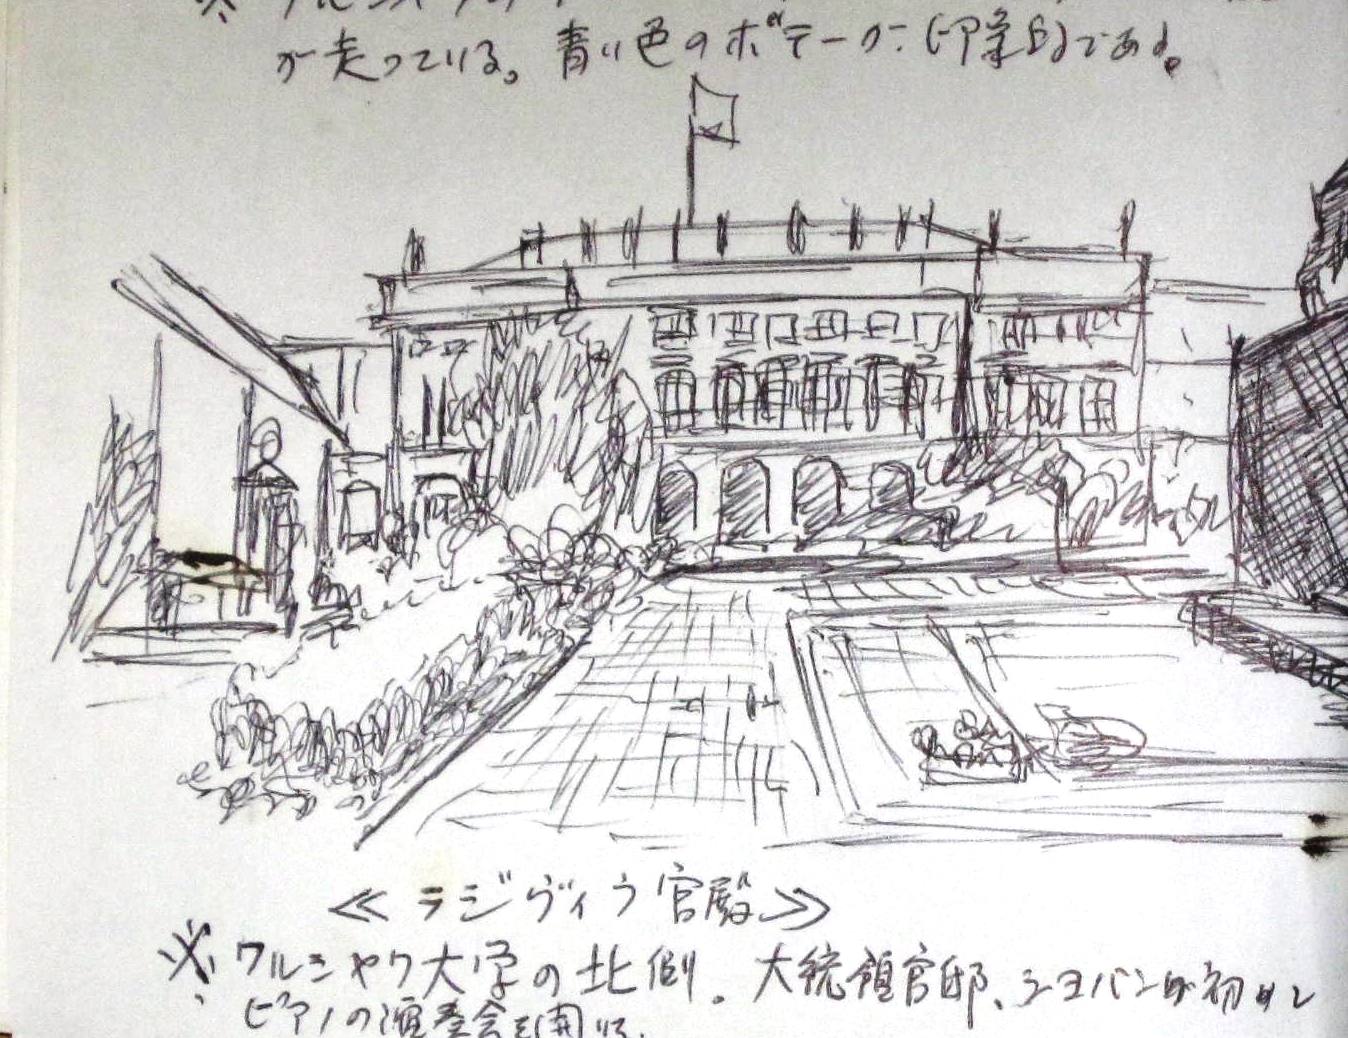 が走っている。青い色のボデーが印象的である。
≪ラジヴィウ宮殿≫
※ワルシャワ大学の北側。大統領官邸、ショパンが初めて
ピアノの演奏会を開いた。